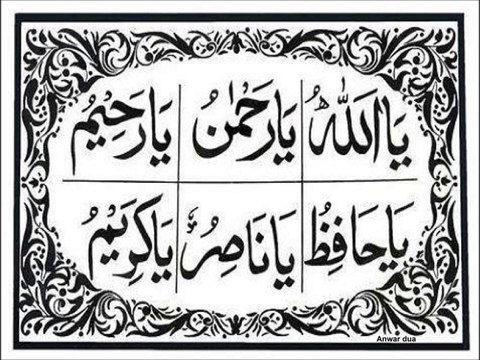 يَا اَللّٰهُ يَا رَحْمٰنُ يَا رَحِيْمُ
يَا حَافِظُ يَا نَاصِرُ يَا كَرِيْمُ
Anwar dua